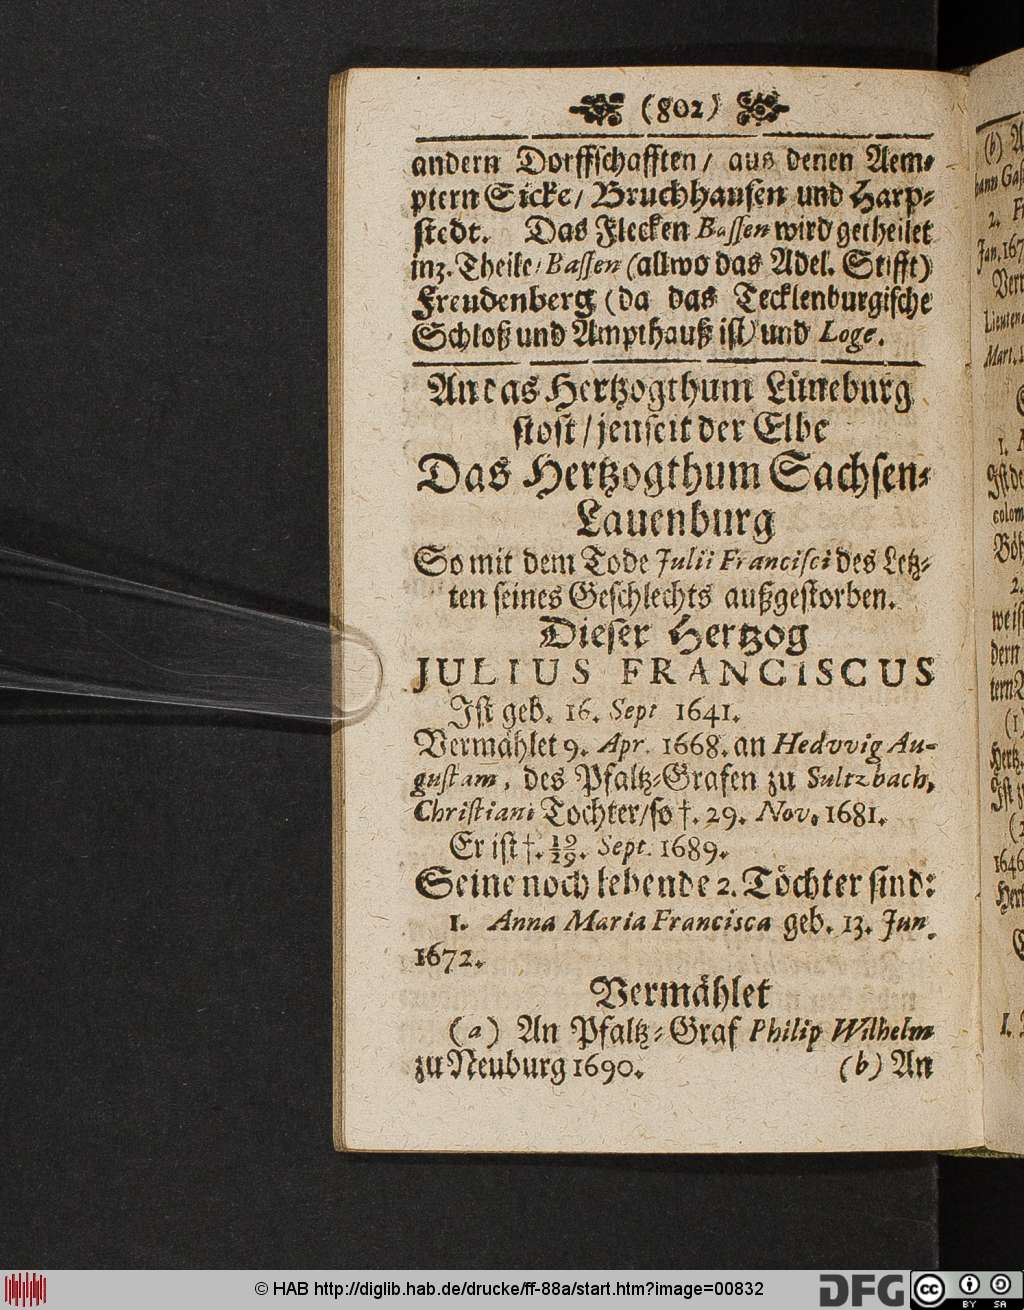 (802)
andern Dorffschafften / aus denen Aem⸗
ptern Sicke / Bruchhausen und Harp⸗
stedt. Das Flecken Bassen wird getheilet
in 3. Theile / Bassen (allwo das Adel. Stifft)
Freudenberg (da das Tecklenburgische
Schloß und Ampthauß ist) und Loge.
An das Hertzogthum Lüneburg
stost / jenseit der Elbe
Das Hertzogthum Sachsen⸗
Lauenburg
So mit dem Tode Julii Francisci des Letz⸗
ten seines Geschlechts außgestorben.
Dieser Hertzog
JULIUS FRANCISCUS
Ist geb. 16. Sept 1641.
Vermählet 9. Apr. 1668. an Hedvvig Au-
gustam, des Pfaltz⸗Grafen zu Sultzbach,
Christiani Tochter / so †. 29. Nov. 1681.
Er ist †. 19/29. Sept. 1689.
Seine noch lebende 2. Töchter sind:
1. Anna Maria Francisca geb. 13. Jun.
1672.
Vermählet
(a) An Pfaltz⸗Graf Philip Wilhelm
zu Neuburg 1690. (b) An
(b)
2.
Jan. 167
Lieuten
Mart.
1.
colom
Böh
2.
weis
dern
(1)
Hertz.
1646
1.
© HAB http://diglib.hab.de/drucke/ff-88a/start.htm?image=00832
DFG
cc
BY SA